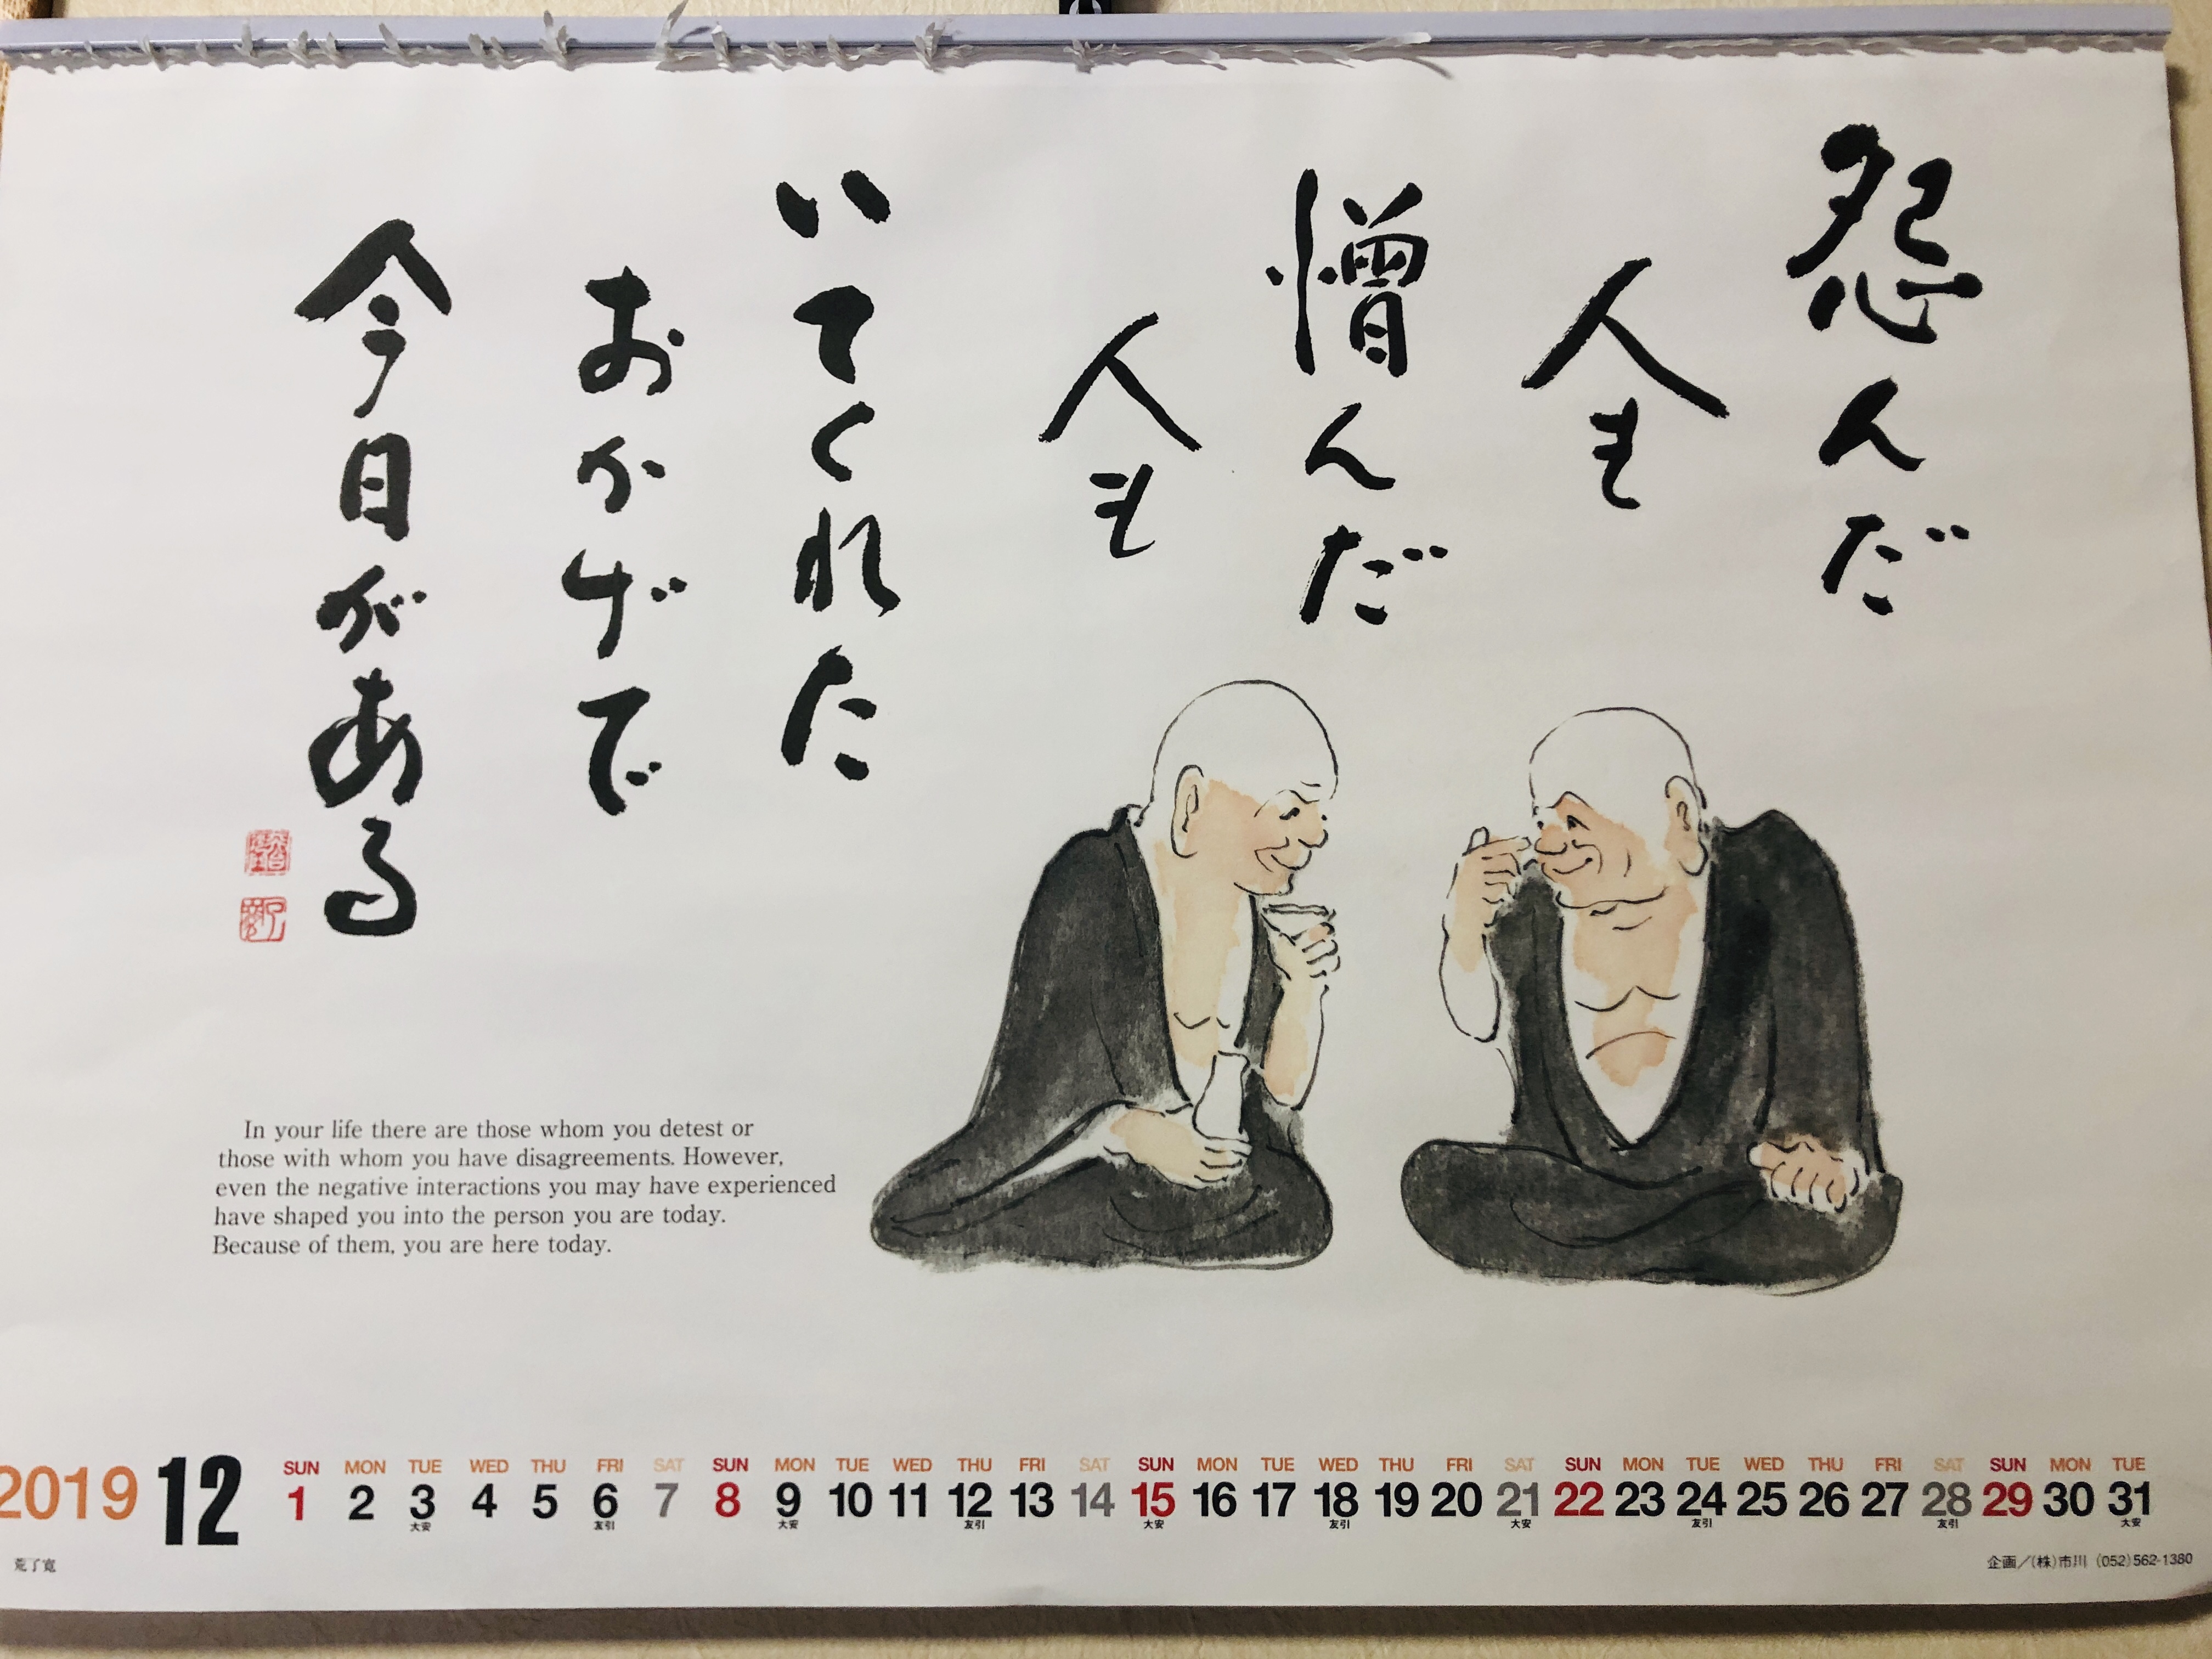 怨んだ
人も
憎んだ
人も
いてくれた
おかげで
今日がある
In your life there are those whom you detest or
those with whom you have disagreements. However,
even the negative interactions you may have experienced
have shaped you into the person you are today.
Because of them, you are here today.
2019 12
SUN MON TUE WED THU FRI SAT SUN MON TUE WED THU FRI SAT SUN MON TUE WED THU FRI SAT SUN MON TUE WED THU FRI SAT SUN MON TUE
1 2 3 4 5 6 7 8 9 10 11 12 13 14 15 16 17 18 19 20 21 22 23 24 25 26 27 28 29 30 31
大安 友引 大安 友引 大安 友引 大安 友引 友引 大安
荒了寛
企画／(株)市川 (052)562-1380